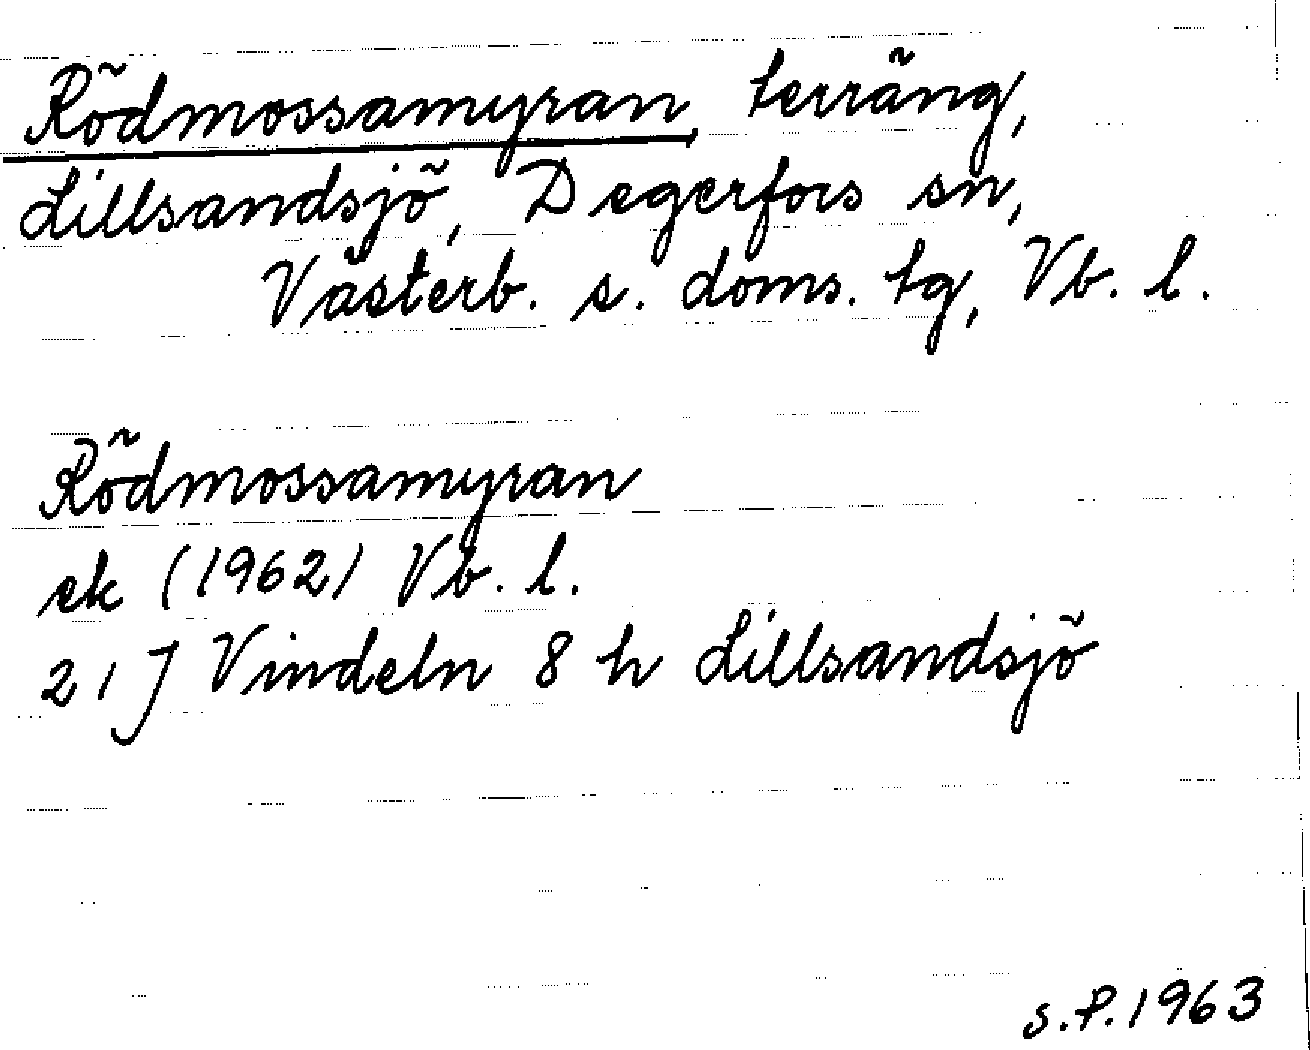 Rödmossamyran, terräng,
Lillsandsjö, Degerfors sn,
Västerb. s. doms. tg, Vb. l.
Rödmossamyran
ek (1962) Vb. l.
21 J Vindeln 8 h Lillsandsjö
s.P. 1963